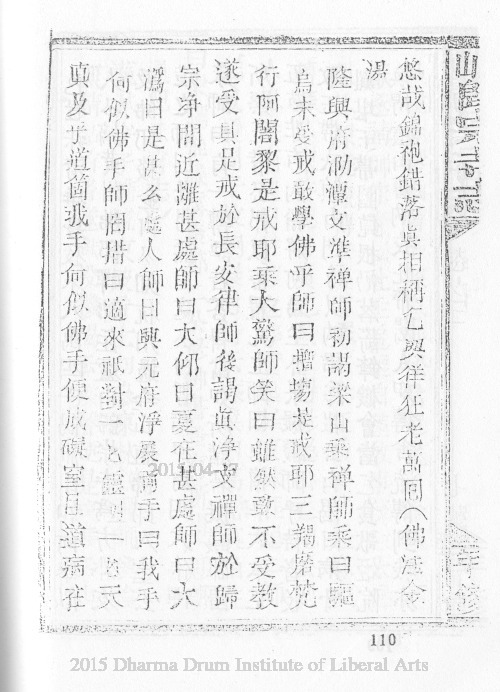 悠哉錦袍錯落眞相稱乞與佯狂老萬囘(佛金
湯
隆興府泐潭文準禪師初謁梁山乘禪師乘曰驅
烏未受戒敢學佛乎師曰壇場是戒耶三羯磨梵
行阿闍黎是戒耶乘大驚師笑曰雖然敢不受教
遂受具足戒於長安律師後謁眞淨文禪師於歸
宗淨問近離甚處師曰大仰曰夏在甚處師曰大
溈曰是甚么處人師曰興元府淨展兩手曰我手
何似佛手師罔措曰適來祇對一一靈明一一天
眞及乎道箇我手何似佛手便成礙窒且道病在
110
2015 Dharma Drum Institute of Liberal Arts